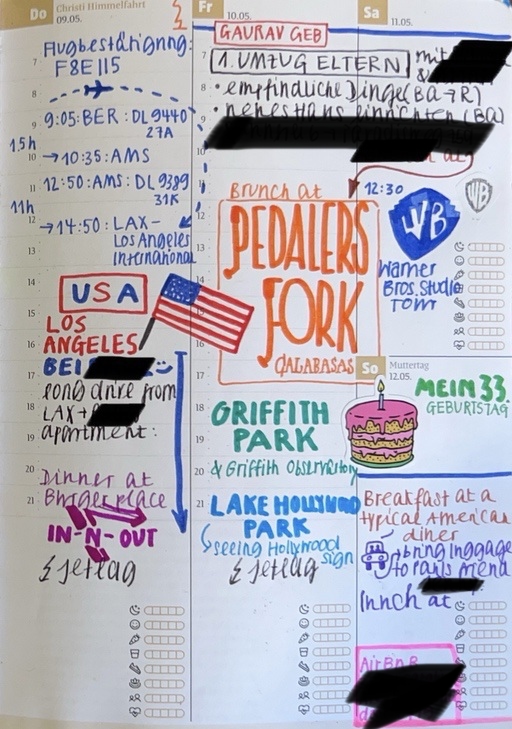 Do Christi Himmelfahrt
09.05.
Flugbestätigung:
F8E115
7
8
9:05: BER: DL9440
27A
9
1.5h
10
→ 10:35: AMS
11
12:50: AMS: DL9389
31K
11h
12
→ 14:50: LAX-
Los Angeles
International
13
14
USA
15
LOS
ANGELES
16
BEI
17
long drive from
18
LAX +
19
apartment:
20
Dinner at
21
Burger place
IN-N-OUT
Jetlag
Fr
10.05.
GAURAV GEB
7
1. UMZUG ELTERN
mit
8
• empfindliche Dinge (BA→R)
9
• neues Haus einrichten (BA)
10
11
Brunch at
12
PEDALERS
FORK
CALABASAS
13
14
17
18
GRIFFITH
PARK
19
20
& Griffith Observatory
21
LAKE HOLLYWOOD
PARK
seeing Hollywood
sign
Jetlag
Sa
11.05.
12:30
WB
WB
Warner
Bros. Studio
Tour
So Muttertag
12.05.
MEIN 33.
GEBURTSTAG
Breakfast at a
typical American
diner
→ bring luggage
to
lunch at
AirBnB